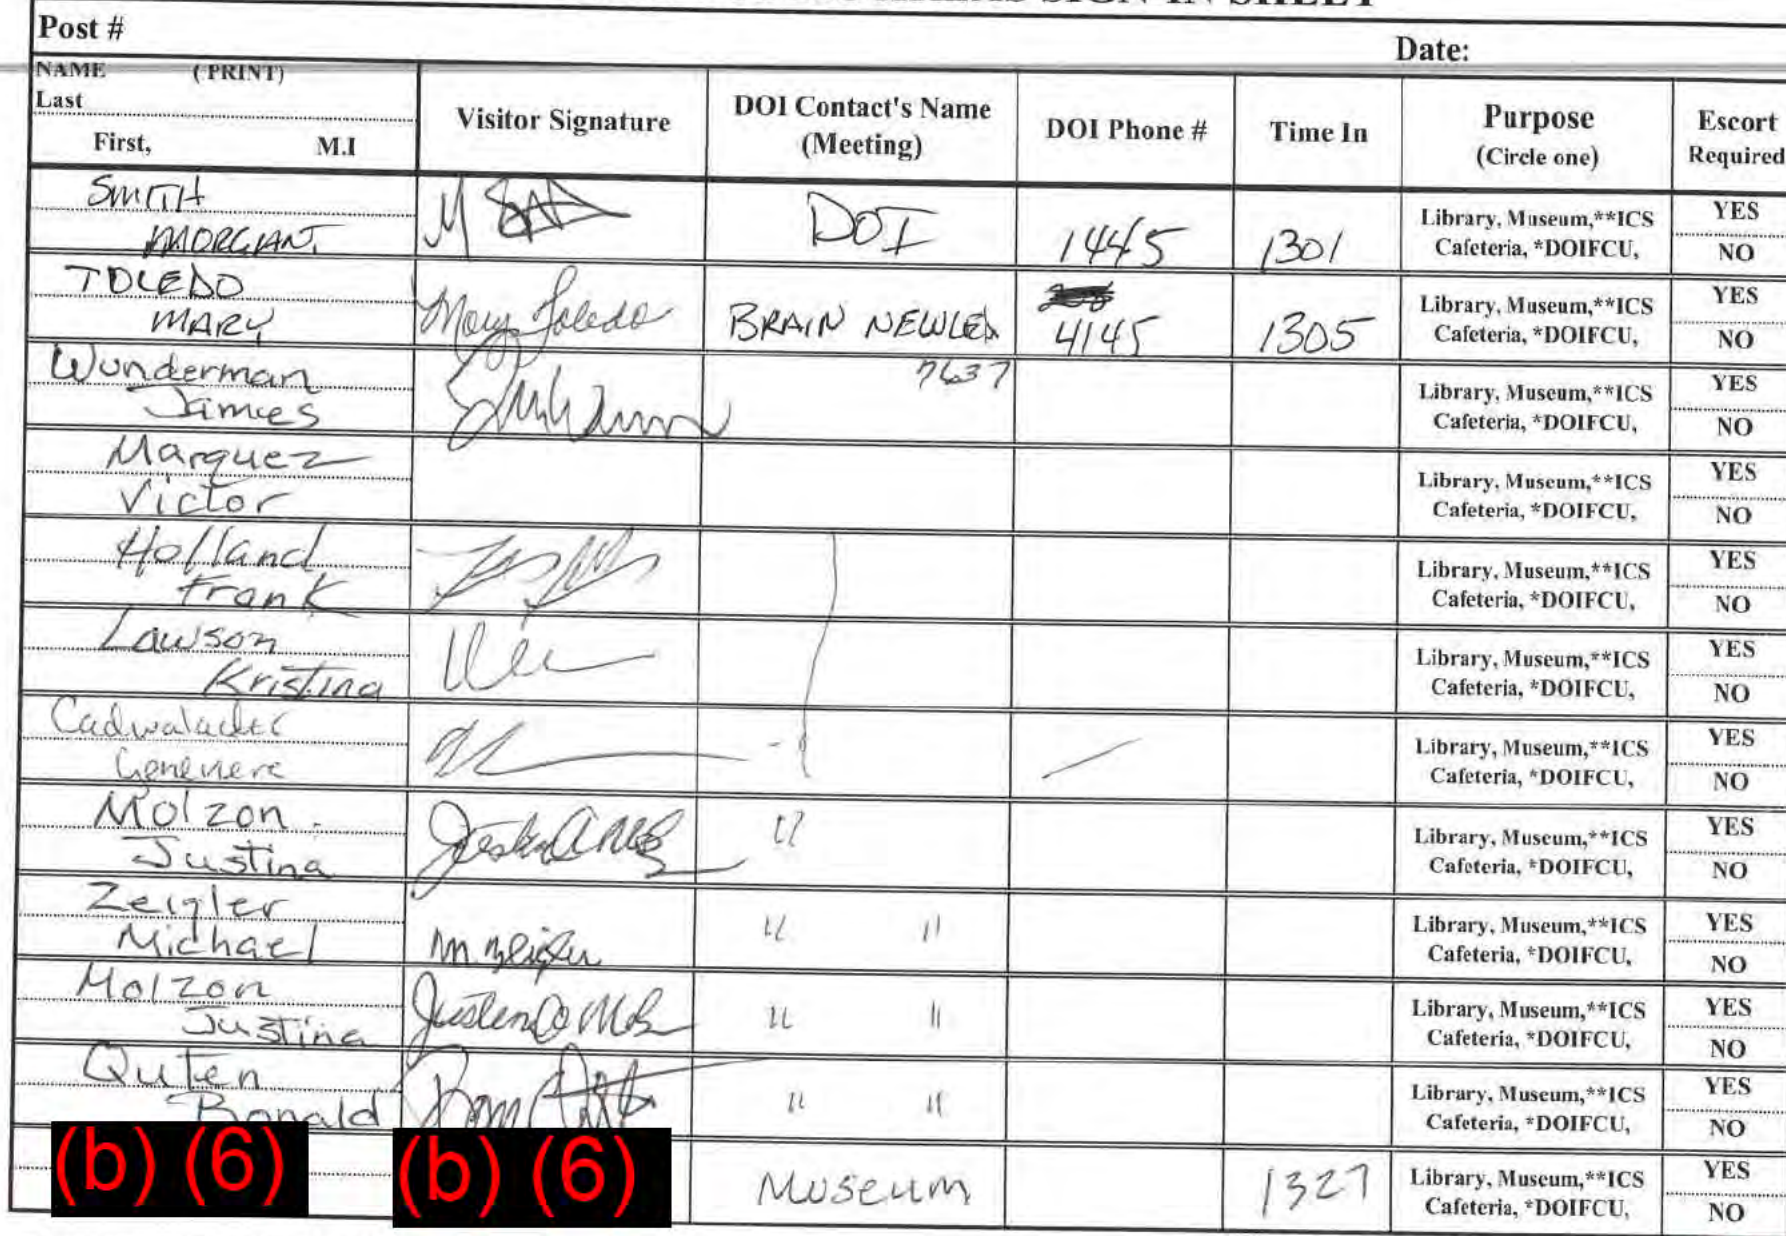 SIGN-IN SHEET
Post #
Date:
NAME (PRINT)
Last
First, M.I
Visitor Signature
DOI Contact's Name
(Meeting)
DOI Phone #
Time In
Purpose
(Circle one)
Escort
Required
SMITH
MORGAN
M
DOI
1445
1301
Library, Museum,**ICS
Cafeteria, *DOIFCU,
YES
NO
TOLEDO
MARY
Mary Toledo
BRAIN NEWLEN
4145
1305
Library, Museum,**ICS
Cafeteria, *DOIFCU,
YES
NO
Wunderman
James
7637
Library, Museum,**ICS
Cafeteria, *DOIFCU,
YES
NO
Marquez
Victor
Library, Museum,**ICS
Cafeteria, *DOIFCU,
YES
NO
Holland
Frank
Library, Museum,**ICS
Cafeteria, *DOIFCU,
YES
NO
Lawson
Kristina
Library, Museum,**ICS
Cafeteria, *DOIFCU,
YES
NO
Cadwalader
Genevieve
Library, Museum,**ICS
Cafeteria, *DOIFCU,
YES
NO
Molzon
Justina
"
Library, Museum,**ICS
Cafeteria, *DOIFCU,
YES
NO
Zeigler
Michael
M Zeigler
" "
Library, Museum,**ICS
Cafeteria, *DOIFCU,
YES
NO
Molzon
Justina
" "
Library, Museum,**ICS
Cafeteria, *DOIFCU,
YES
NO
Quten
Ronald
" "
Library, Museum,**ICS
Cafeteria, *DOIFCU,
YES
NO
(b) (6)
(b) (6)
Museum
1327
Library, Museum,**ICS
Cafeteria, *DOIFCU,
YES
NO